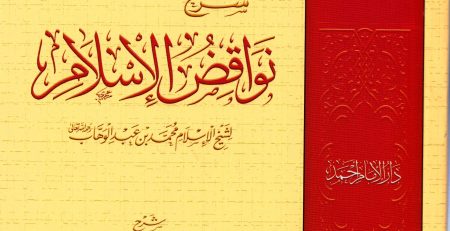 شرح
نواقض الإسلام
لشيخ الإسلام محمد بن عبد الوهاب رحمه الله تعالى
شرح
دار الإمام أحمد